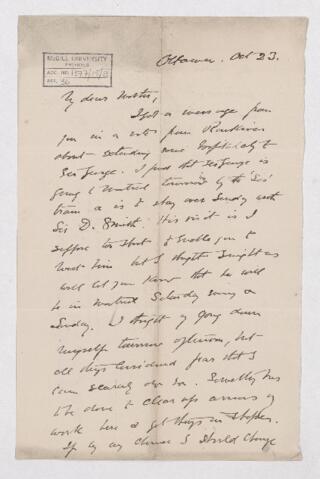 McGILL UNIVERSITY
ARCHIVES
ACC. NO.
REF.
Ottawa. Oct 23.
My dear Mother,
I got a message from
you in a note from
about extending some hospitality to
Sir George. I find that Sir George is
going to Montreal tomorrow by the
train & is to stay over Sunday with
Sir D. Smith. His visit is I
suppose too short to enable you to
him but I thought I might as
well let you know that he will
be in Montreal Saturday &
Sunday. I thought of going down
myself tomorrow afternoon, but
all things considered fear that I
can scarcely do so. Something has
to be done to clear up arrears of
work here & get things in shape.
If by any chance I should change